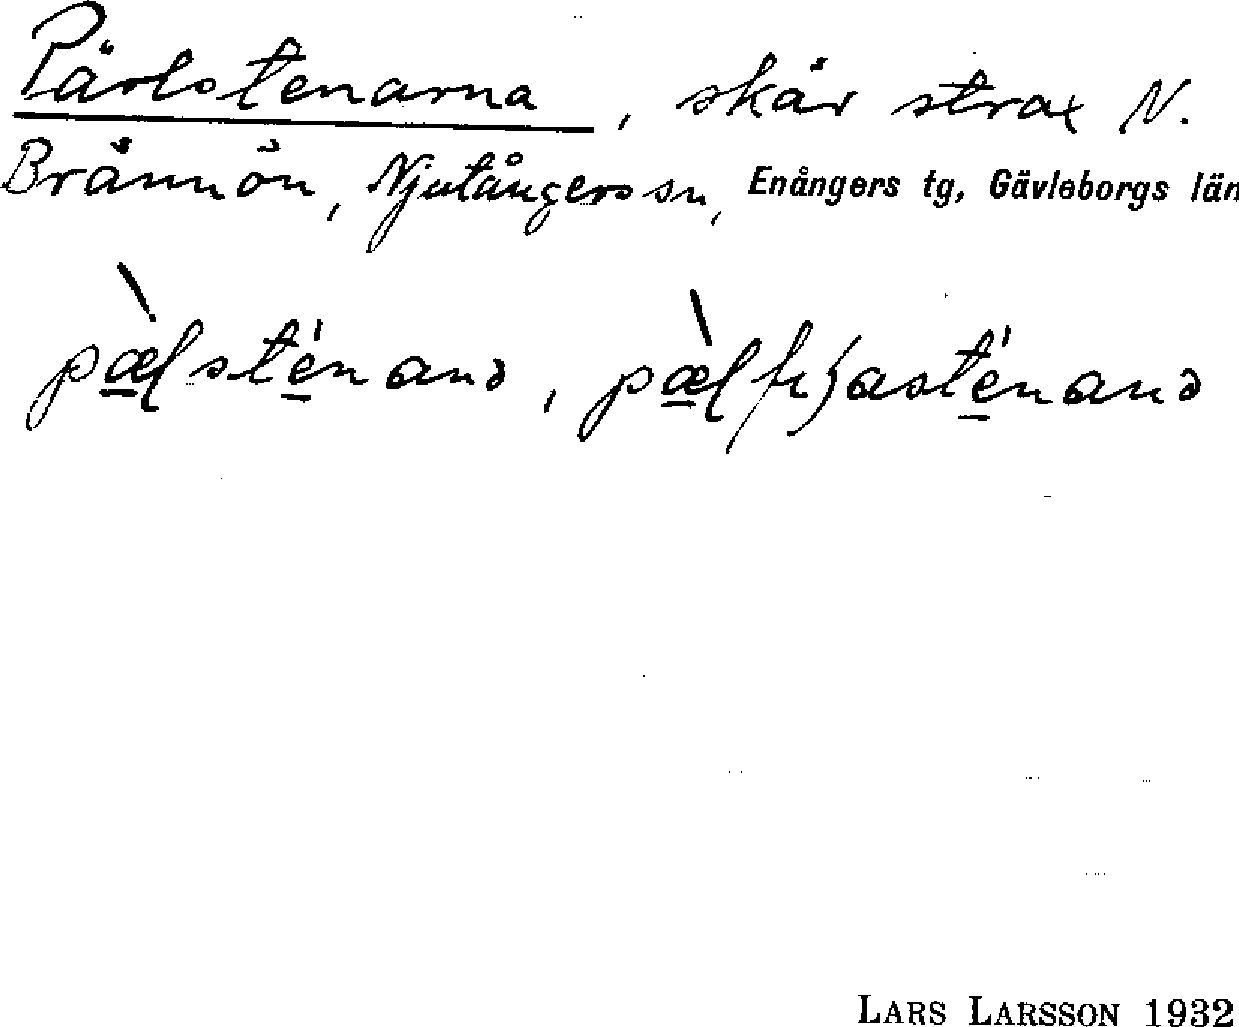 Pärlstenarna, skär strax N.
Brännön, Njutångers sn, Enångers tg, Gävleborgs län
pæ̀lsténanə, pæ̀l(k)asténanə
LARS LARSSON 1932